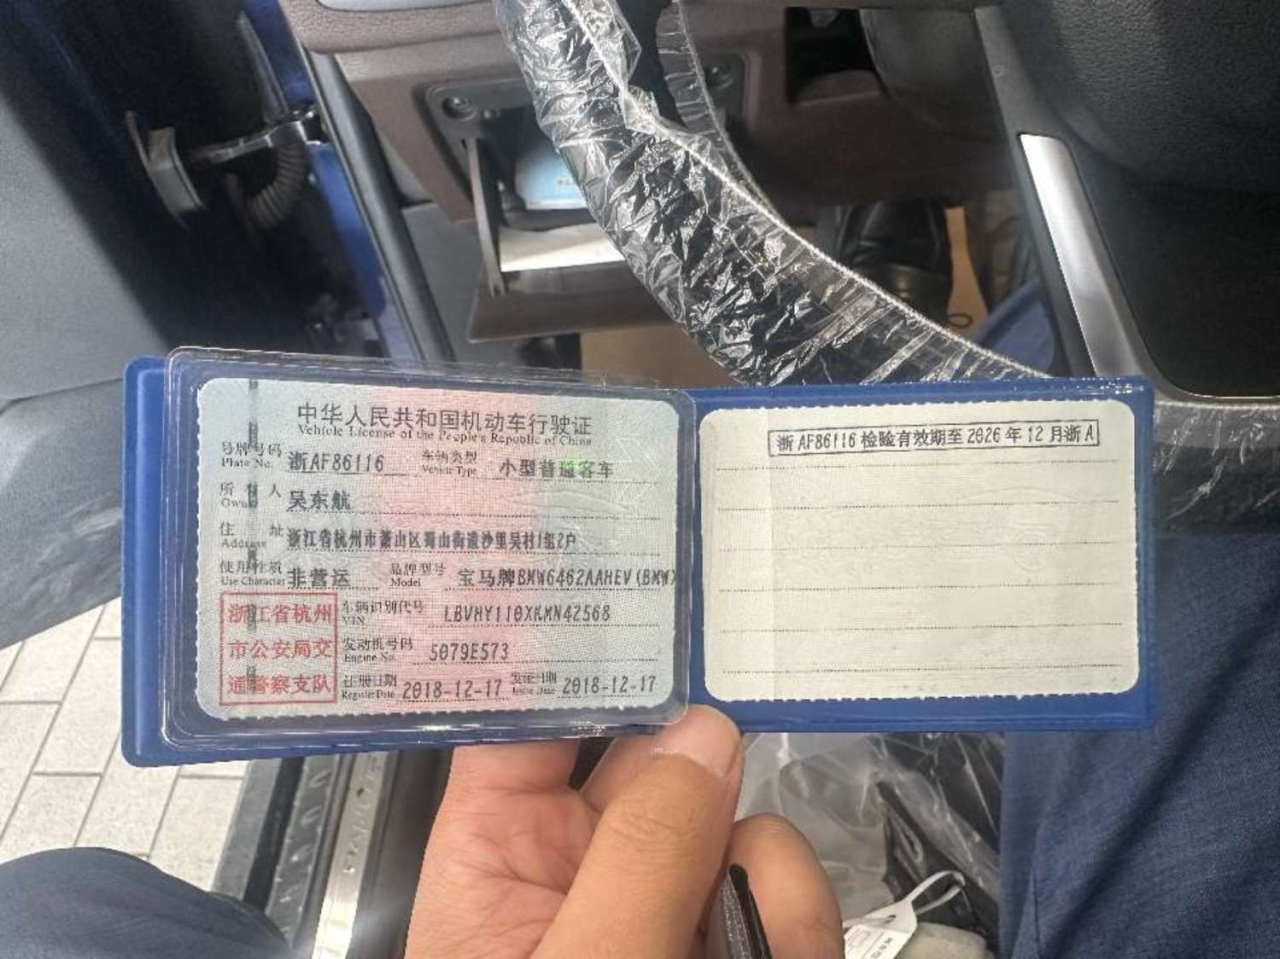 中华人民共和国机动车行驶证
Vehicle License of the People's Republic of China
号牌号码 浙AF86116 车辆类型 小型普通客车
Plate No. Vehicle Type
所有人 吴东航
Owner
住址 浙江省杭州市萧山区蜀山街道沙里吴村1组2户
Address
使用性质 非营运 品牌型号 宝马牌BMW6462AAHEV(BMW
Use Character Model
浙江省杭州 车辆识别代号 LBVHY110XKMN42568
VIN
市公安局交 发动机号码 5079E573
Engine No.
通警察支队 注册日期 2018-12-17 发证日期 2018-12-17
Register Date Issue Date
浙AF86116检验有效期至2026年12月浙A